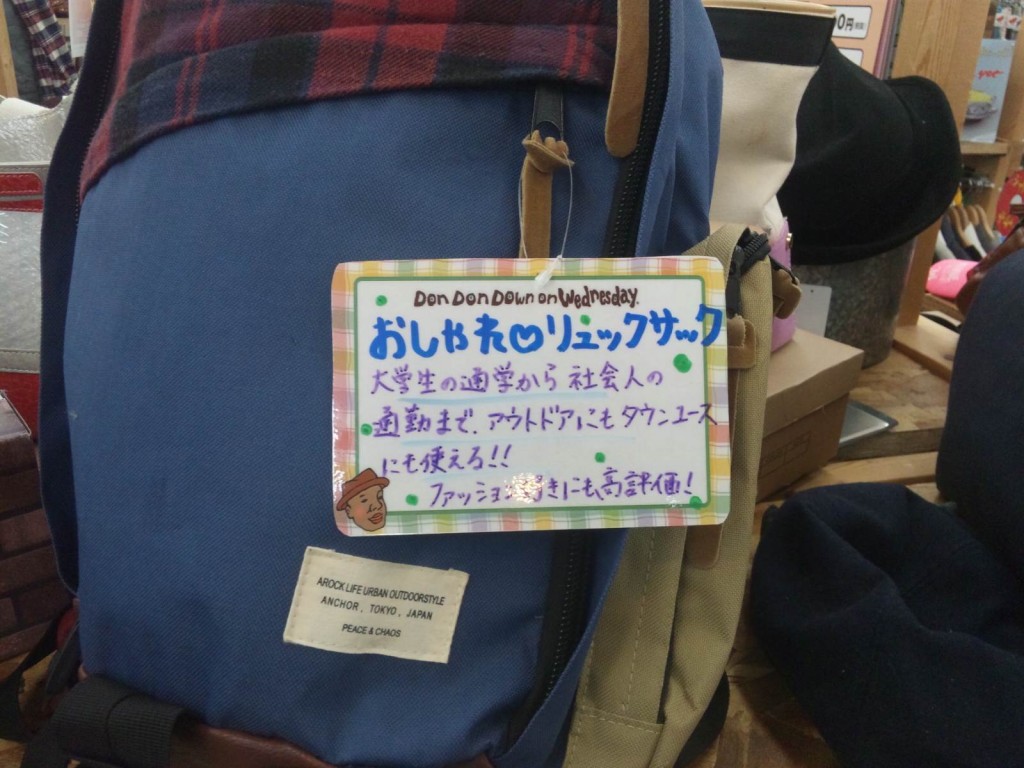 0円
Don Don Down on Wednesday.
おしゃれ♡リュックサック
大学生の通学から 社会人の
通勤まで、アウトドアにもタウンユース
にも使える!!
ファッション好きにも高評価!
AROCK LIFE URBAN OUTDOORSTYLE
ANCHOR, TOKYO, JAPAN
PEACE & CHAOS